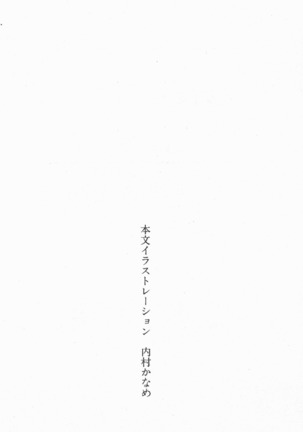 本文イラストレーション　内村かなめ